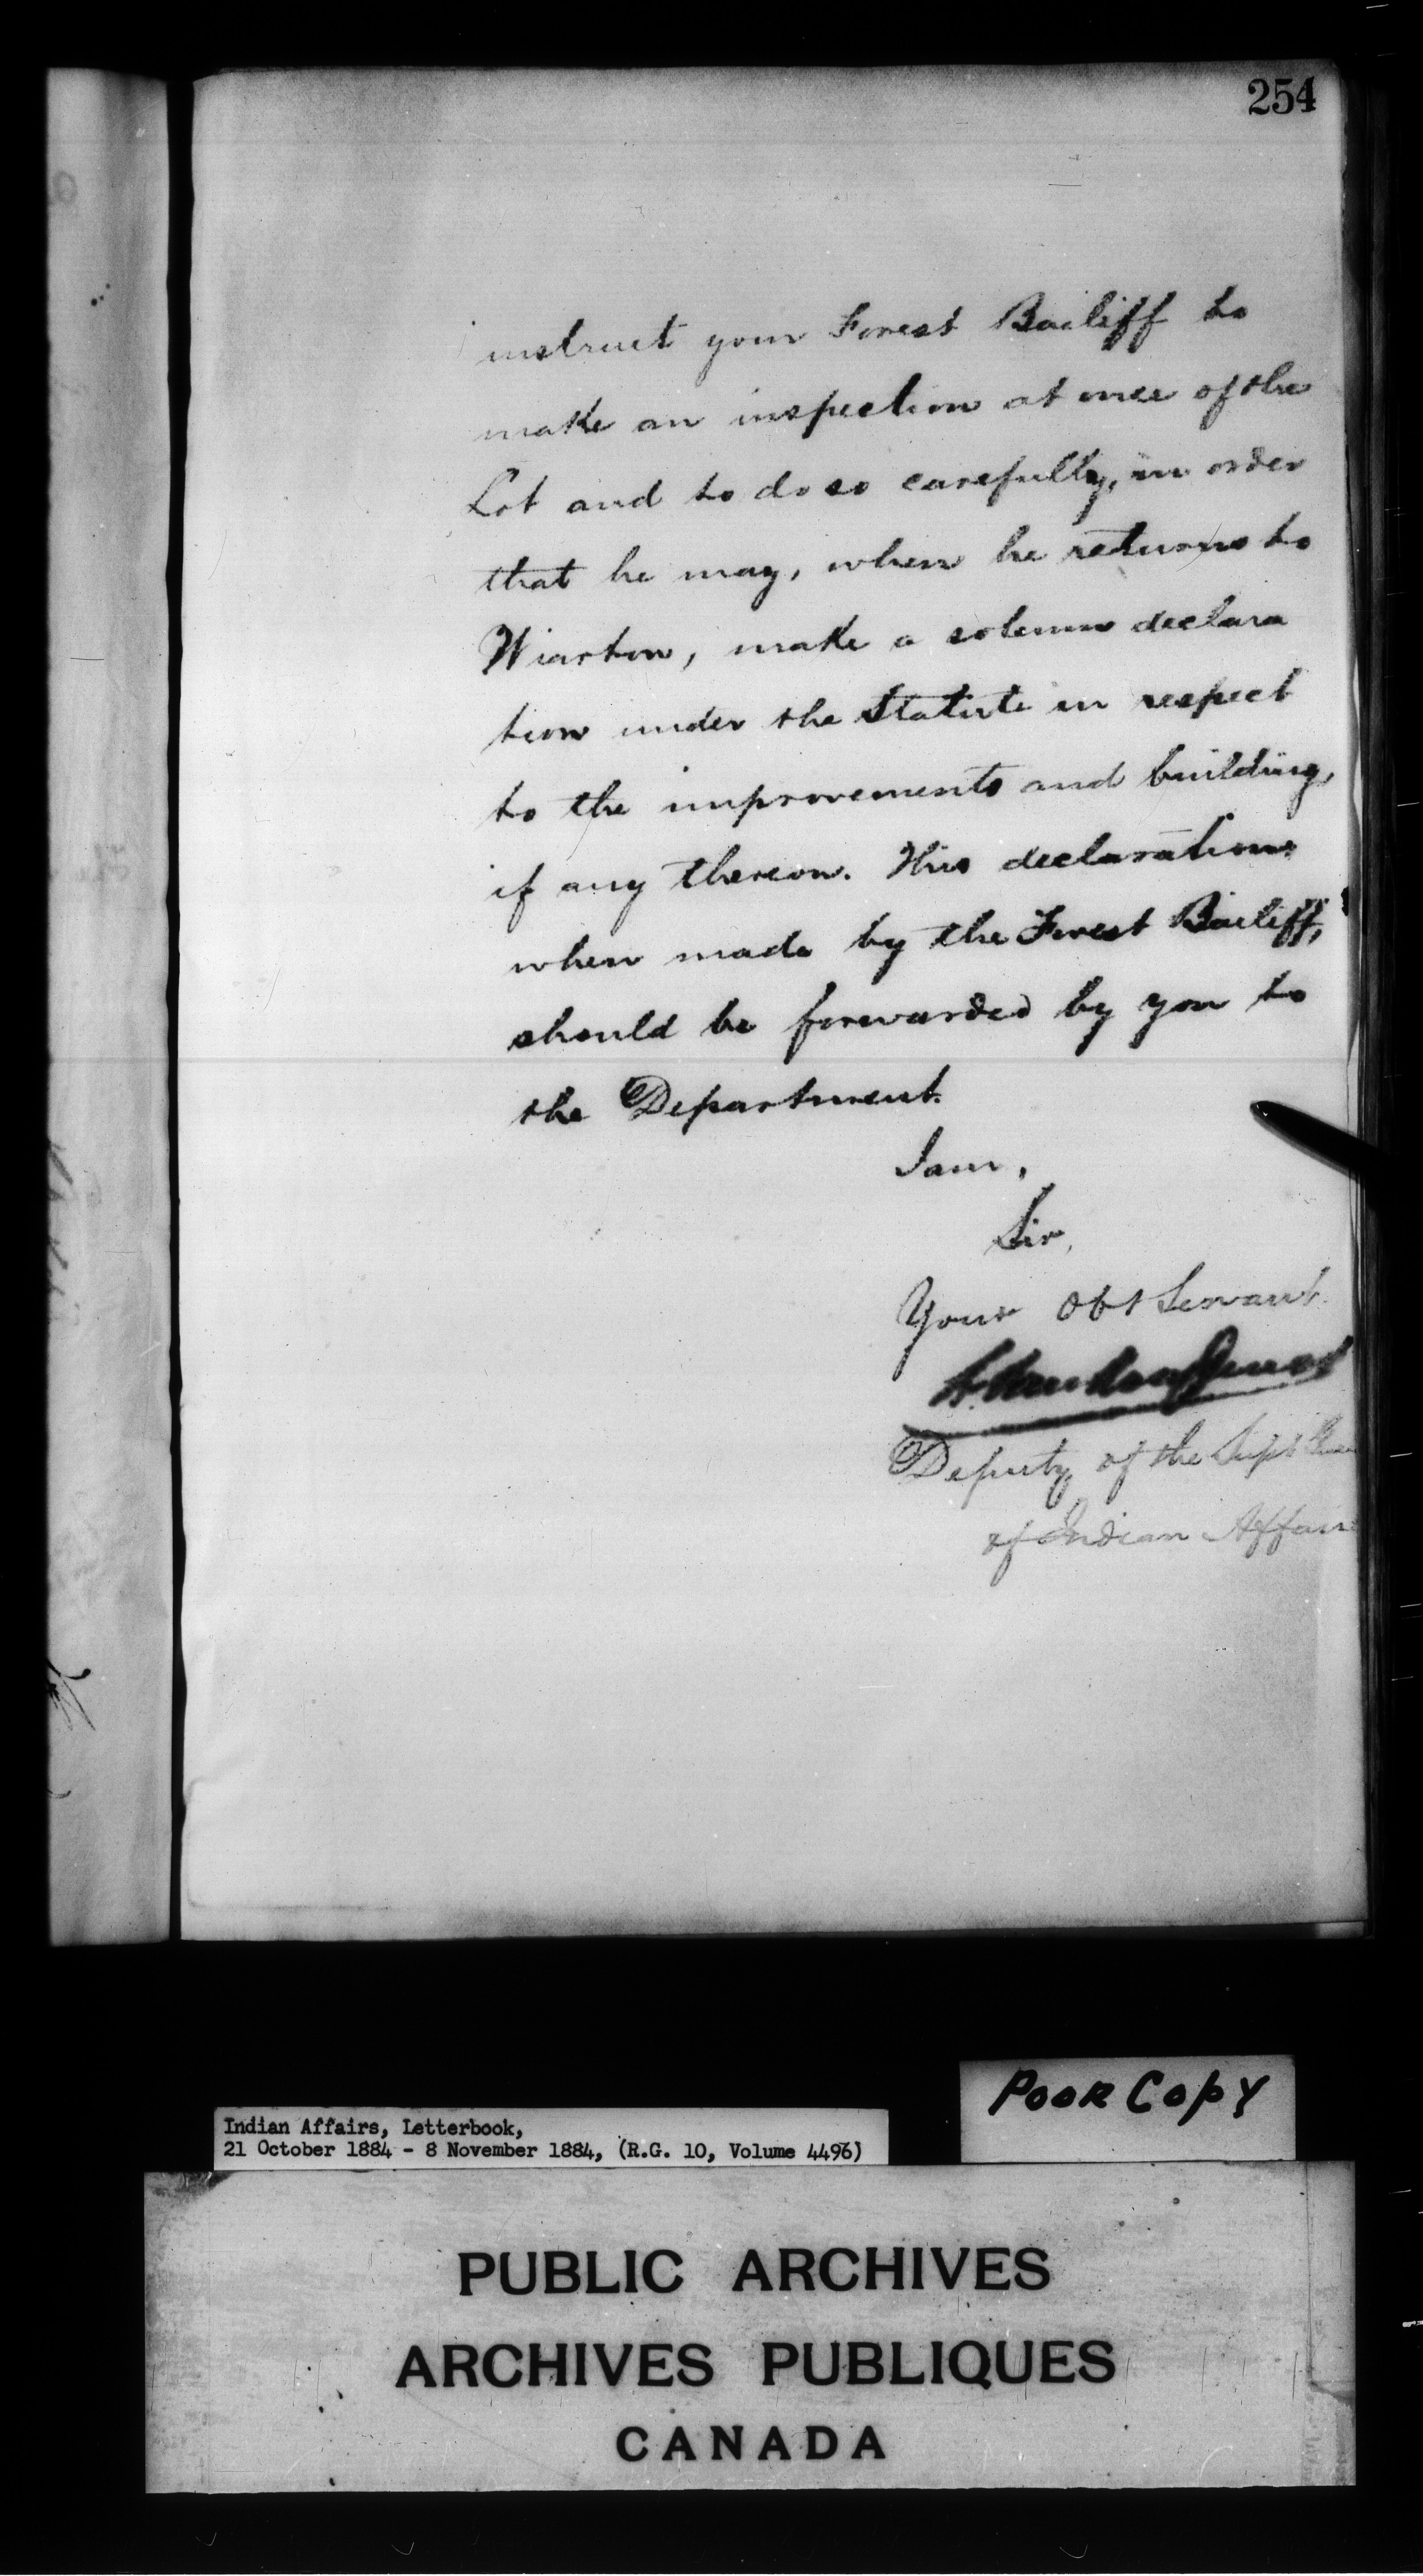 254
instruct your Forest Bailiff to
make an inspection at once of the
Lot and to do so carefully, in order
that he may, when he returns to
Wiarton, make a solemn declara
tion under the Statute in respect
to the improvements and building,
if any thereon. This declaration
when made by the Forest Bailiff,
should be forwarded by you to
the Department.
I am,
Sir,
Your Obt Servant
Deputy of the Supt
of Indian Affairs
POOR COPY
Indian Affairs, Letterbook,
21 October 1884 - 8 November 1884, (R.G. 10, Volume 4496)
PUBLIC ARCHIVES
ARCHIVES PUBLIQUES
CANADA